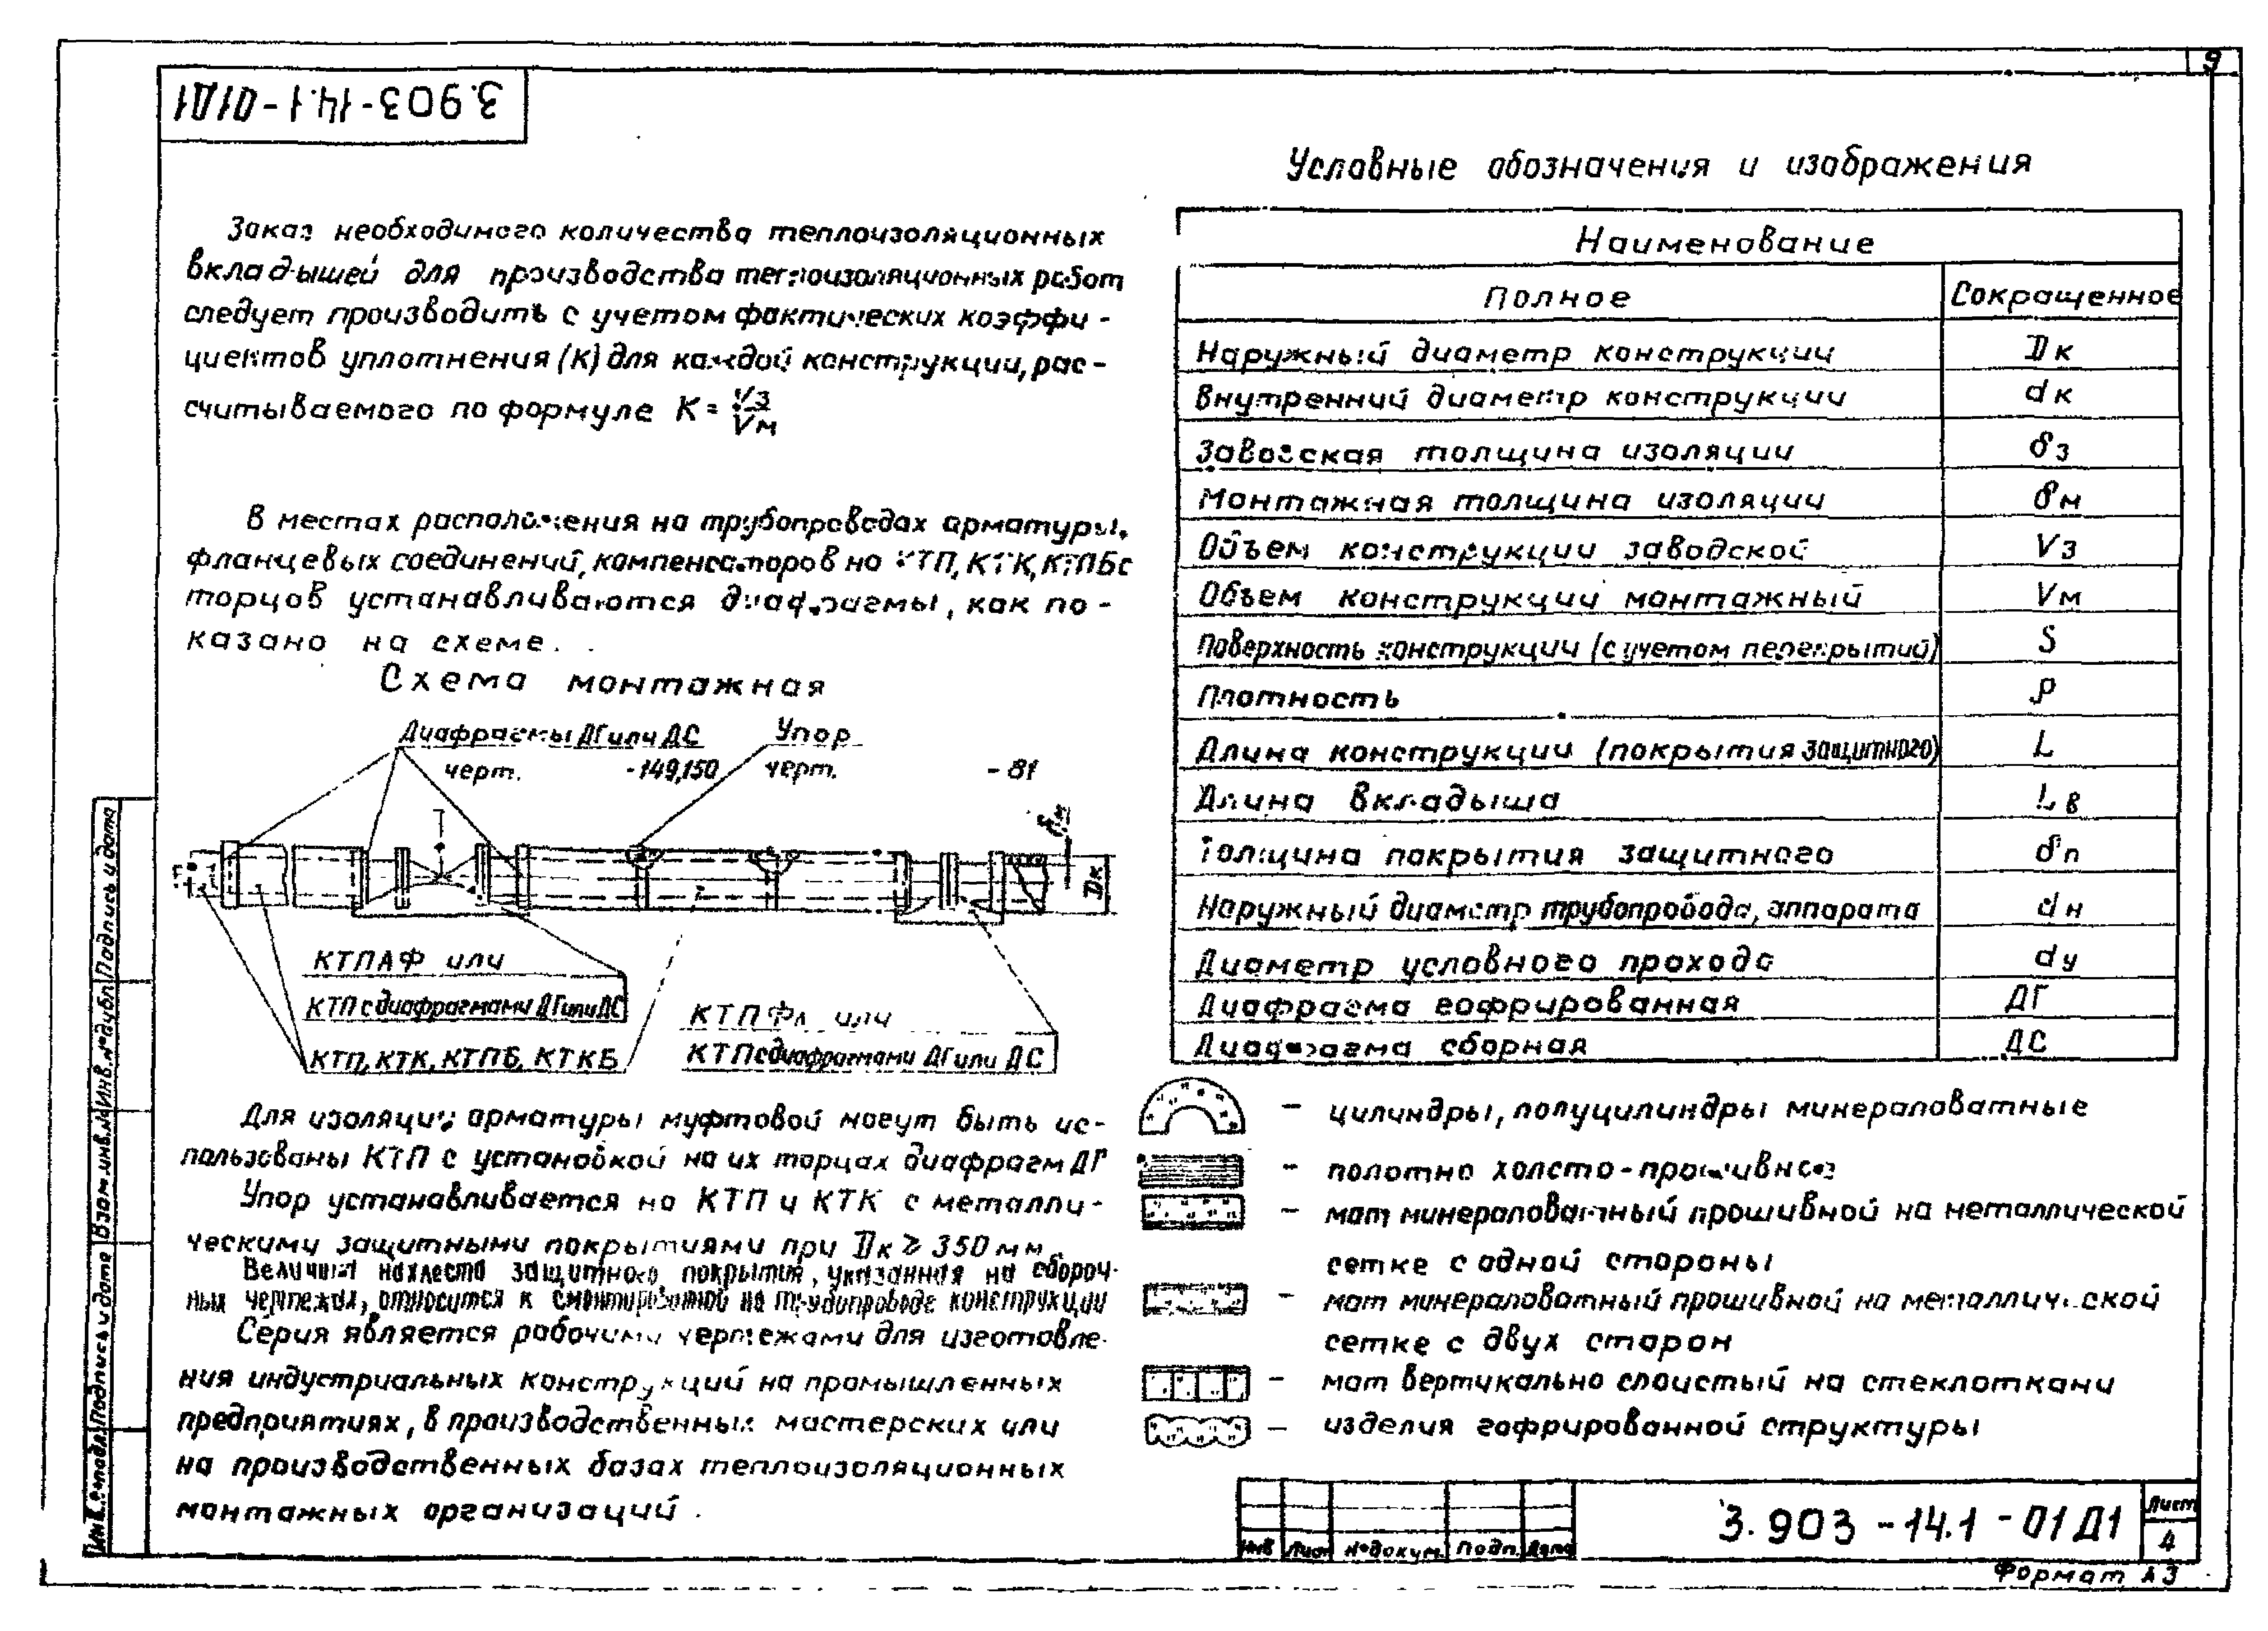 9
3.903-14.1-01Д1
Заказ необходимого количества теплоизоляционных
вкладышей для производства теплоизоляционных работ
следует производить с учетом фактических коэффи-
циентов уплотнения (К) для каждой конструкции, рас-
считываемого по формуле К = Vз/Vм
В местах расположения на трубопроводах арматуры,
фланцевых соединений, компенсаторов на КТП, КТК, КТПБс
торцов устанавливаются диафрагмы, как по-
казано на схеме.
Схема монтажная
Диафрагмы ДГ или ДС
черт. -149,150
Упор
черт. -81
δм
Dк
КТПАФ или
КТП с диафрагмами ДГ или ДС
КТП, КТК, КТПБ, КТКБ
КТПФл или
КТП с диафрагмами ДГ или ДС
Для изоляции арматуры муфтовой могут быть ис-
пользованы КТП с установкой на их торцах диафрагм ДГ
Упор устанавливается на КТП и КТК с металли-
ческими защитными покрытиями при Dк ≥ 350 мм.
Величина нахлеста защитного покрытия, указанная на сбороч-
ных чертежах, относится к смонтированной на трубопроводе конструкции
Серия является рабочими чертежами для изготовле-
ния индустриальных конструкций на промышленных
предприятиях, в производственных мастерских или
на производственных базах теплоизоляционных
монтажных организаций.
Условные обозначения и изображения
Наименование
Полное Сокращенное
Наружный диаметр конструкции Dк
Внутренний диаметр конструкции dк
Заводская толщина изоляции δз
Монтажная толщина изоляции δм
Объем конструкции заводской Vз
Объем конструкции монтажный Vм
Поверхность конструкции (с учетом перекрытий) S
Плотность ρ
Длина конструкции (покрытия защитного) L
Длина вкладыша Lв
Толщина покрытия защитного δп
Наружный диаметр трубопровода, аппарата dн
Диаметр условного прохода dу
Диафрагма гофрированная ДГ
Диафрагма сборная ДС
– цилиндры, полуцилиндры минераловатные
– полотно холсто-прошивное
– мат минераловатный прошивной на металлической
сетке с одной стороны
– мат минераловатный прошивной на металлической
сетке с двух сторон
– мат вертикально слоистый на стеклоткани
– изделия гофрированной структуры
Инв. № подл. Подпись и дата Взам. инв. № Инв. № дубл. Подпись и дата
Лист № докум. Подп. Дата
3.903-14.1-01Д1
Лист
4
Формат А3